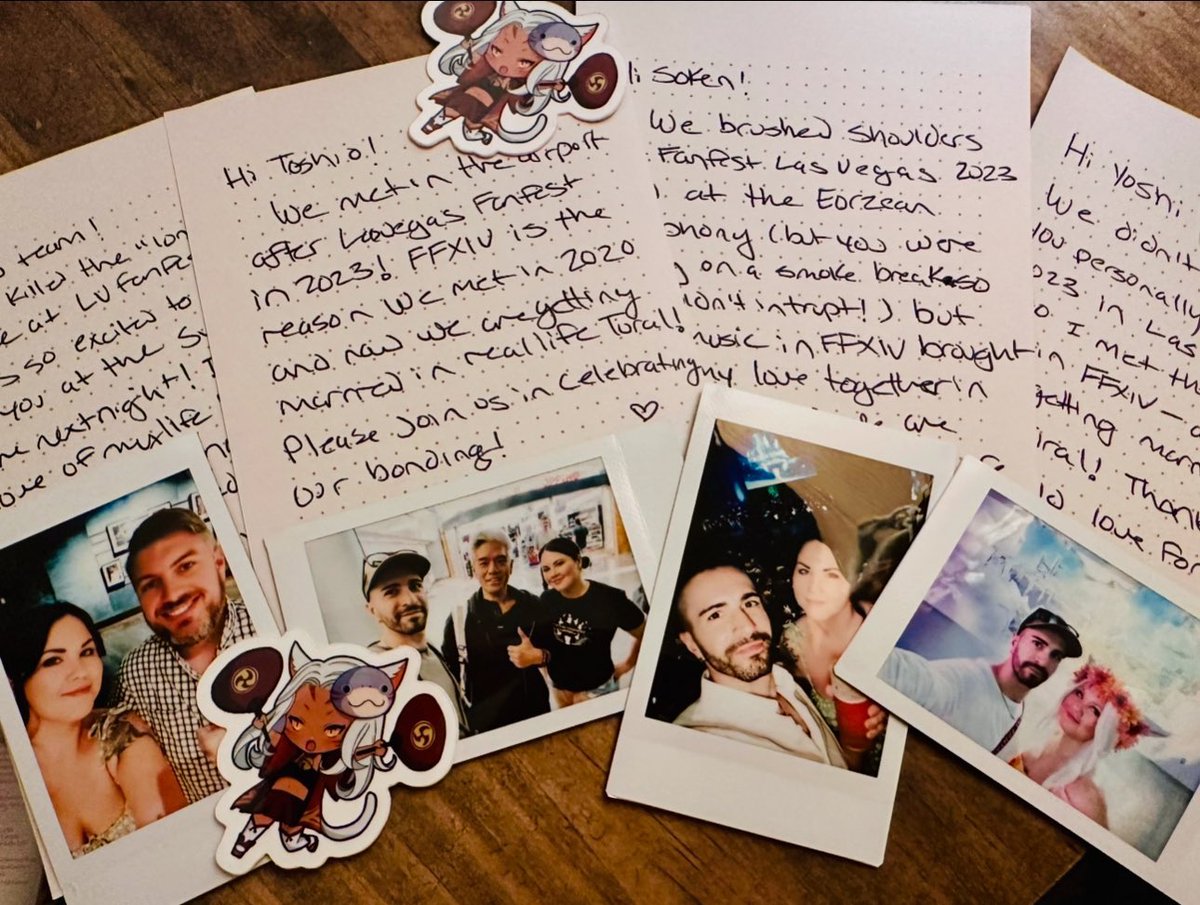 team!
killed the "lon
e at LV Fanfe
s so excited to
you at the S
e next night! I
ove of my life
Hi Toshio!
We met in the airport
after Las Vegas Fanfest
in 2023! FFXIV is the
reason we met in 2020
and now we are getting
married in real life Tural!
Please join us in celebrating
our bonding!
i Soken!
We brushed shoulders
Fanfest Las Vegas 2023
at the Eorzean
phony (but you were
on a smoke break so
dn't intrupt!) but
music in FFXIV brought
my love together in
are
Hi Yoshi
We didn't
you personally
2023 in Las
o I met th
in FFXIV – a
getting marr
ral! Thank
love for